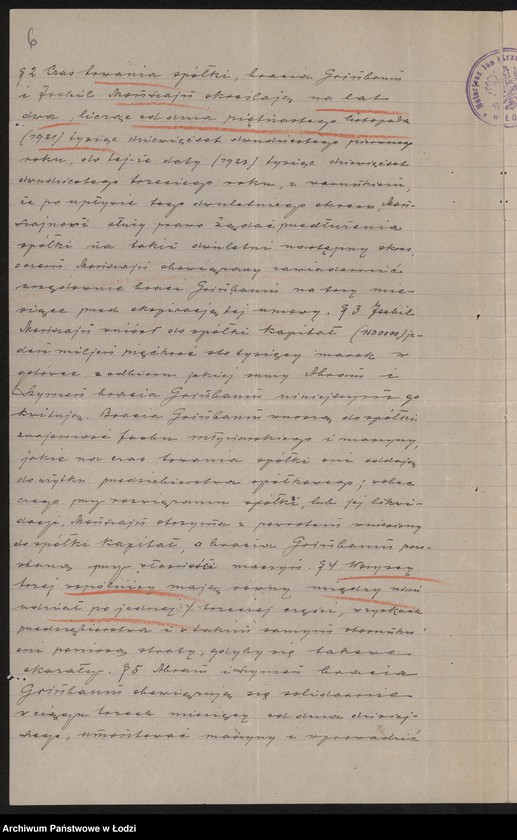 6
§ 2 Czas trwania spółki, bracia Grünbaum
i Jechil określają na lat
dwa, licząc od dnia piętnastego listopada
(1921) tysiąc dziewięćset dwudziestego pierwszego
roku, do tejże daty (1923) tysiąc dziewięćset
dwudziestego trzeciego roku, z warunkiem,
że po upływie tego dwuletniego okresu
służy prawo żądać przedłużenia
spółki na takiż dwuletni następny okres,
o czem obowiązany zawiadomić
urzędownie braci Grünbaum na trzy mie-
siące przed ekspiracją tej umowy. § 3 Jechil
wniósł do spółki kapitał (1500000) je-
den miljon pięćkroć sto tysięcy marek w
gotówce, z odbioru jakiej sumy Abram i
Szymon bracia Grünbaum niniejszym go
kwitują. Bracia Grünbaum wnoszą do spółki
znajomość fachu młynarskiego i maszyny,
jakie na czas trwania spółki oni oddają
do użytku przedsiębiorstwa spółkowego; wobec
czego przy rozwiązaniu spółki, lub jej likwi-
dacji, otrzyma z powrotem wniesiony
do spółki kapitał, a bracia Grünbaum pozo-
staną przy własności maszyn. § 4 Wszyscy
trzej wspólnicy mają równy między nimi
udział po jednej ⅓ trzeciej części, w zyskach
przedsiębiorstwa i w takim samym stosunku
oni poniosą straty, gdyby się takowe
okazały. § 5 Abram i Szymon bracia
Grünbaum obowiązują się solidarnie
w ciągu trzech miesięcy od dnia dzisiej-
szego, umontować maszyny i wprowadzić
Archiwum Państwowe w Łodzi